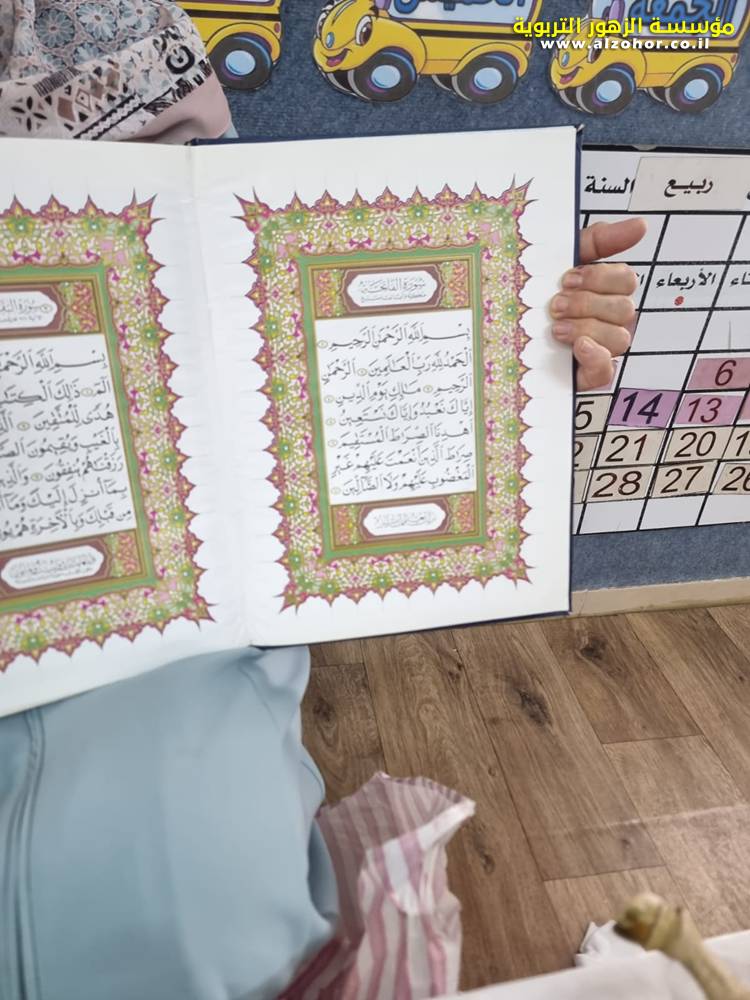 مؤسسة الزهور التربوية
www.alzohor.co.il
الجمعة
الخميس
السنة
ربيع
الأربعاء
6
5 14 13
21 20
28 27 26
سورة الفاتحة
بسم الله الرحمن الرحيم
الحمد لله رب العالمين الرحمن
الرحيم مالك يوم الدين
إياك نعبد وإياك نستعين
اهدنا الصراط المستقيم
صراط الذين أنعمت عليهم غير
المغضوب عليهم ولا الضالين
سورة
بسم الله
الم ذلك الكتاب
هدى للمتقين
بالغيب ويقيمون
رزقناهم ينفقون والذين
بما أنزل إليك وما
من قبلك وبالآخرة هم